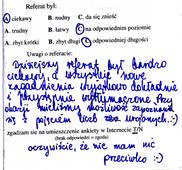 Referat był:
A. ciekawy B. nudny C. da się znieść
A. trudny B. łatwy C. na odpowiednim poziomie
A. zbyt krótki B. zbyt długi C. odpowiedniej długości
Uwagi o referacie:
Dzisiejszy referat był bardzo
ciekawy, a wszystkie nowe
zagadnienia wyjątkowo dokładnie
i przystępnie wytłumaczone. Przy
okazji mieliśmy możliwość zapoznania
się z pojęciem liczb zespolonych. :-)
zgadzam się na umieszczenie ankiety w Internecie T/N
(brak odpowiedzi = zgoda)
oczywiście, że nie mam nic
przeciwko :-)